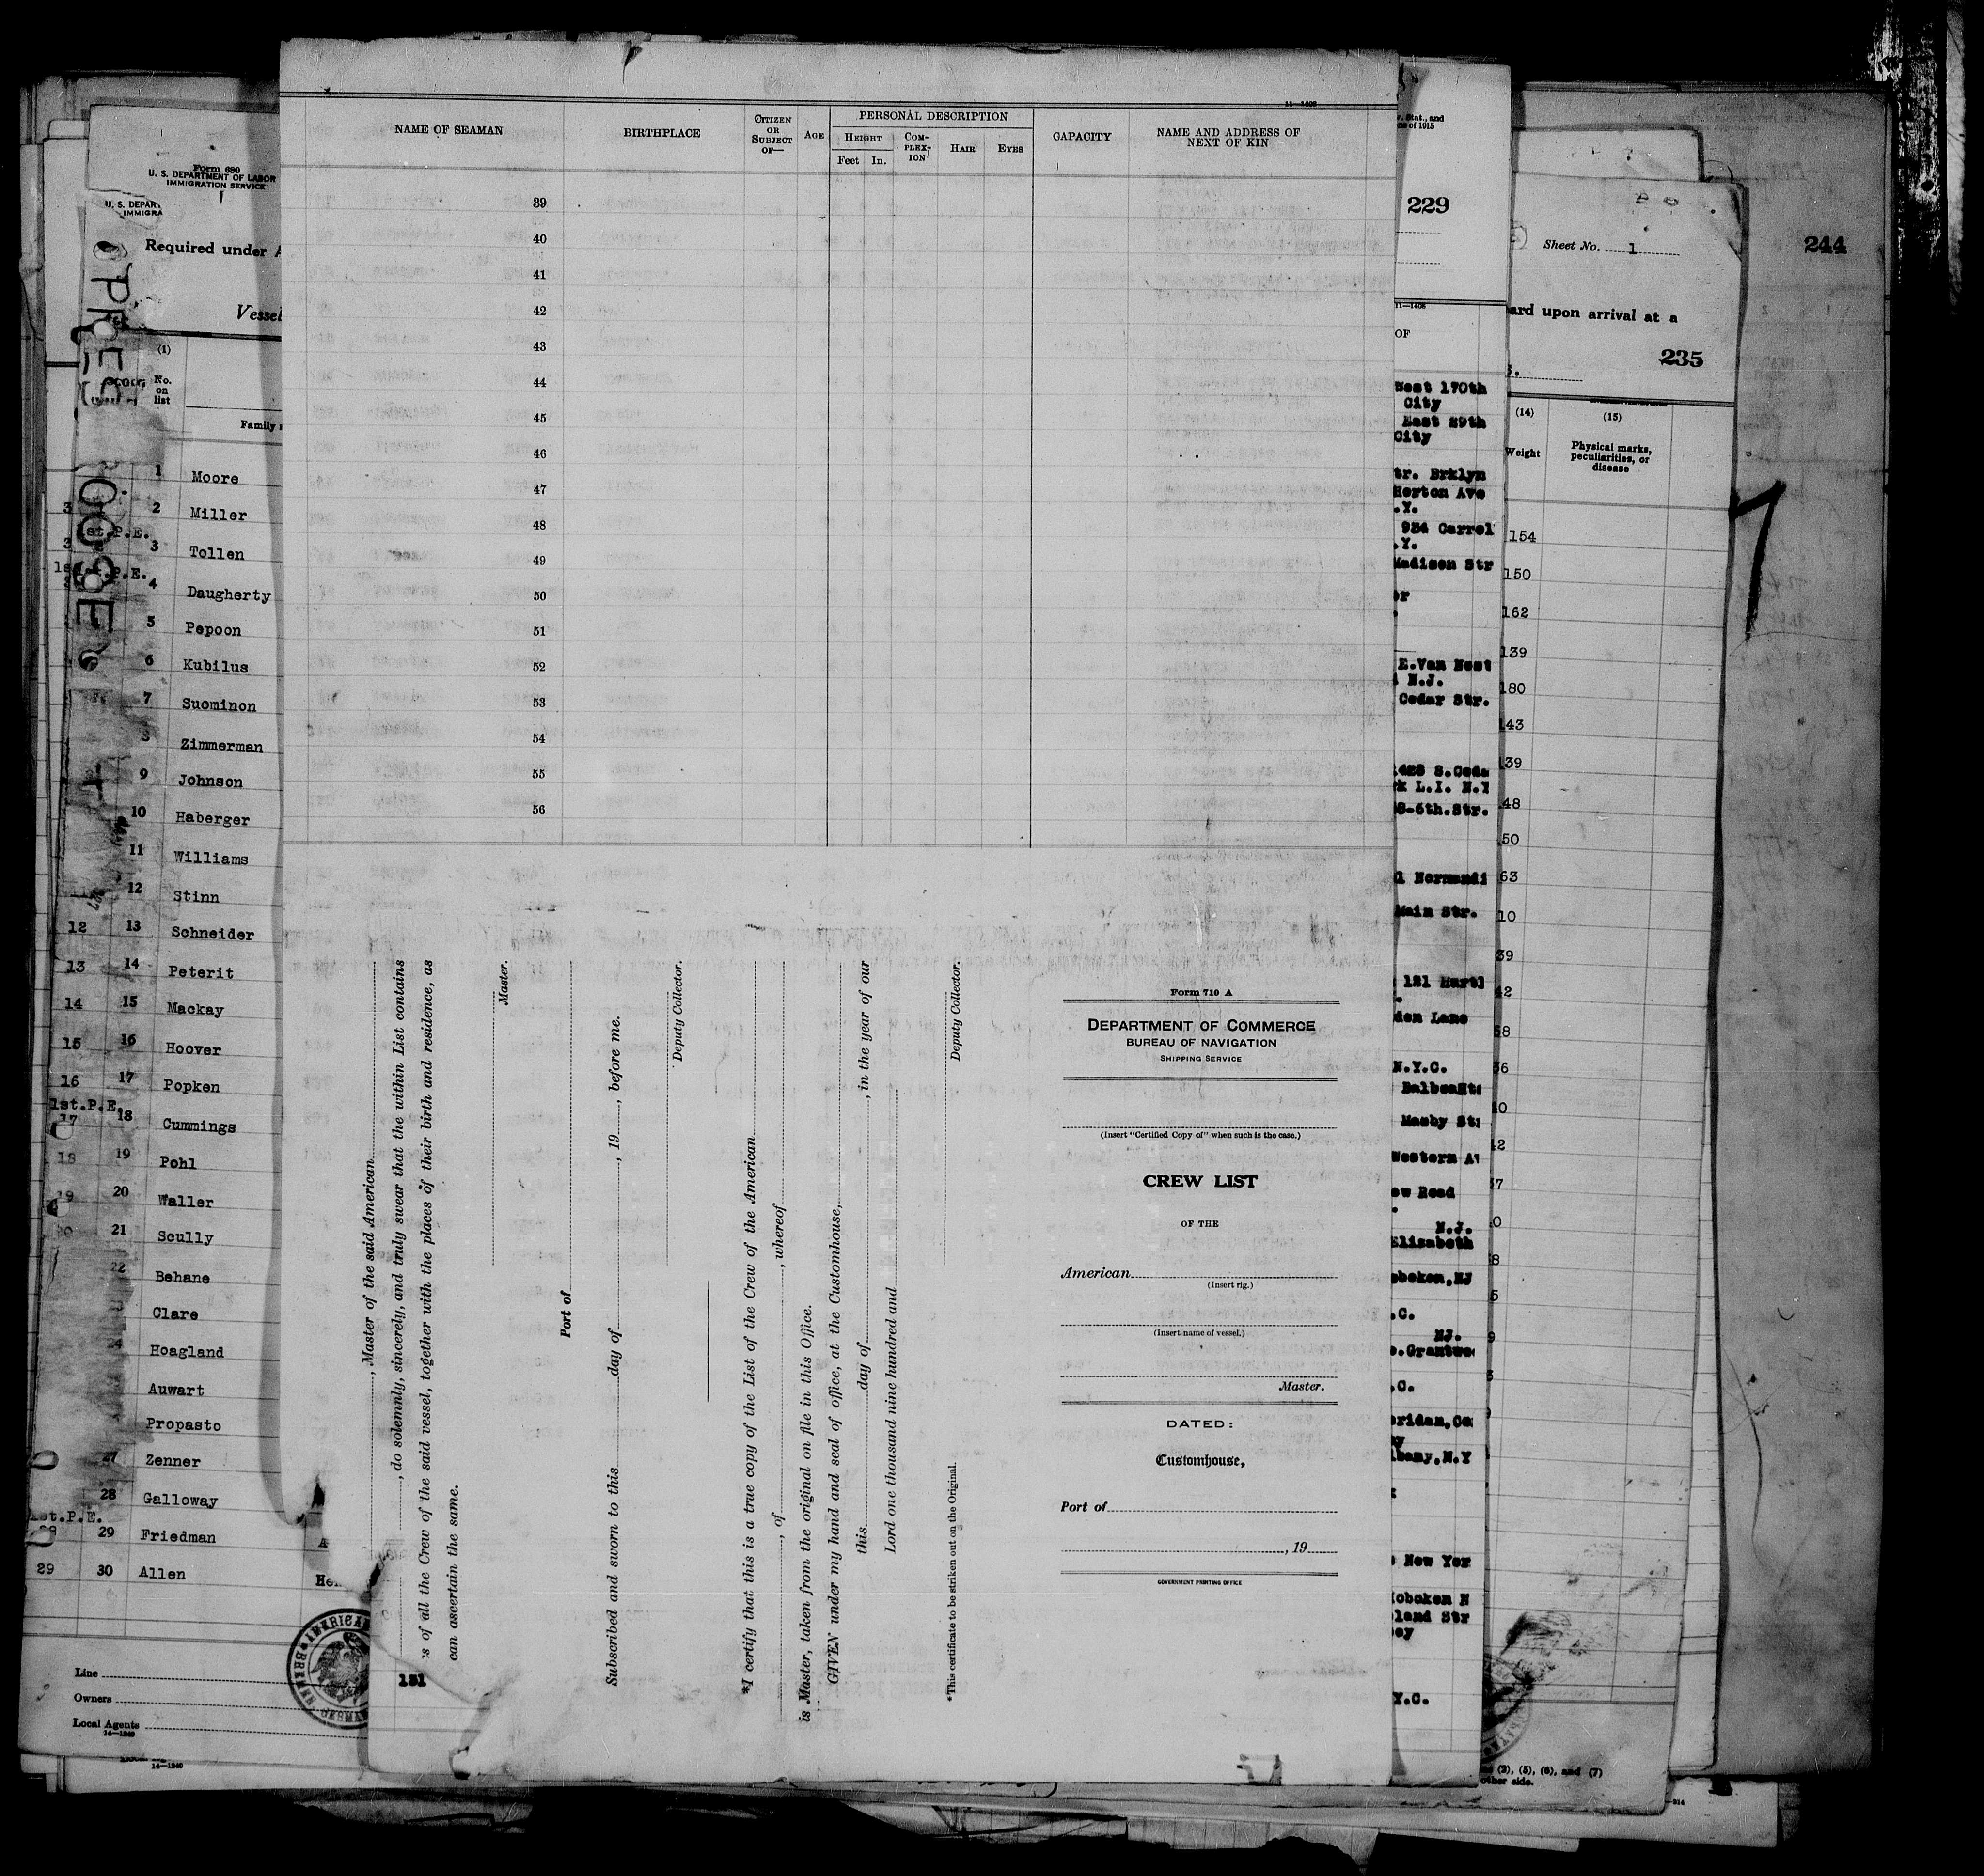 Form 680
U. S. DEPARTMENT OF LABOR
IMMIGRATION SERVICE
U. S. DEPAR
IMMIGRA
Required under A
Vessel
(1)
No.
on
list
Family
PRES
ROOSE
1 Moore
2 Miller
1st.P.E. 3 Tollen
P.E. 4 Daugherty
5 Pepoon
6 Kubilus
7 Suominon
Zimmerman
9 Johnson
10 Haberger
11 Williams
12 Stinn
12 13 Schneider
13 14 Peterit
14 15 Mackay
15 16 Hoover
16 17 Popken
1st.P.E.
17 18 Cummings
18 19 Pohl
19 20 Waller
20 21 Scully
22 Behane
Clare
24 Hoagland
Auwart
Propasto
27 Zenner
28 Galloway
1st.P.E.
28 29 Friedman
29 30 Allen
Line
Owners
Local Agents
14—1240
14—1240
AMERICAN
BREMERHAVEN
GERMAN
11—1408
NAME OF SEAMAN
BIRTHPLACE
CITIZEN
OR
SUBJECT
OF—
AGE
PERSONAL DESCRIPTION
HEIGHT
Feet In.
COM-
PLEX-
ION
HAIR
EYES
CAPACITY
NAME AND ADDRESS OF
NEXT OF KIN
39
40
41
42
43
44
45
46
47
48
49
50
51
52
53
54
55
56
, Master of the said American
, do solemnly, sincerely, and truly swear that the within List contains
s of all the Crew of the said vessel, together with the places of their birth and residence, as
can ascertain the same.
Master.
Port of
Subscribed and sworn to this day of , 19 , before me.
Deputy Collector.
*I certify that this is a true copy of the List of the Crew of the American
, of , whereof
is Master, taken from the original on file in this Office.
GIVEN under my hand and seal of office, at the Customhouse,
this day of , in the year of our
Lord one thousand nine hundred and
Deputy Collector.
*This certificate to be striken out on the Original.
131
Form 710 A
DEPARTMENT OF COMMERCE
BUREAU OF NAVIGATION
SHIPPING SERVICE
(Insert "Certified Copy of" when such is the case.)
CREW LIST
OF THE
American
(Insert rig.)
(Insert name of vessel.)
Master.
DATED:
Customhouse,
Port of
, 19
GOVERNMENT PRINTING OFFICE
. Stat., and
s of 1915
229
11—1408
OF
West 170th
City
East 29th
City
Str. Brklyn
Horton Ave
.Y.
934 Carrol
.Y.
Madison Str
E.Van Nest
N.J.
Cedar Str.
1428 S.Ceda
k L.I. N.Y
8-6th.Str.
l Normandi
Main Str.
121 Hartl
den Lane
N.Y.C.
Masby St
Western A
ew Road
N.J.
Elizabeth
oboken,NJ
.C.
NJ.
.Grantwo
.C.
eridan,Co
lbany,N.Y
New Yor
Hoboken N
land Str
ey
Y.C.
Sheet No. 1
ard upon arrival at a
235
(14)
(15)
Weight
Physical marks,
peculiarities, or
disease
154
150
162
139
180
143
139
48
50
63
10
39
42
58
36
40
12
37
0
8
5
9
3
(2), (5), (6), and (7)
other side.
244